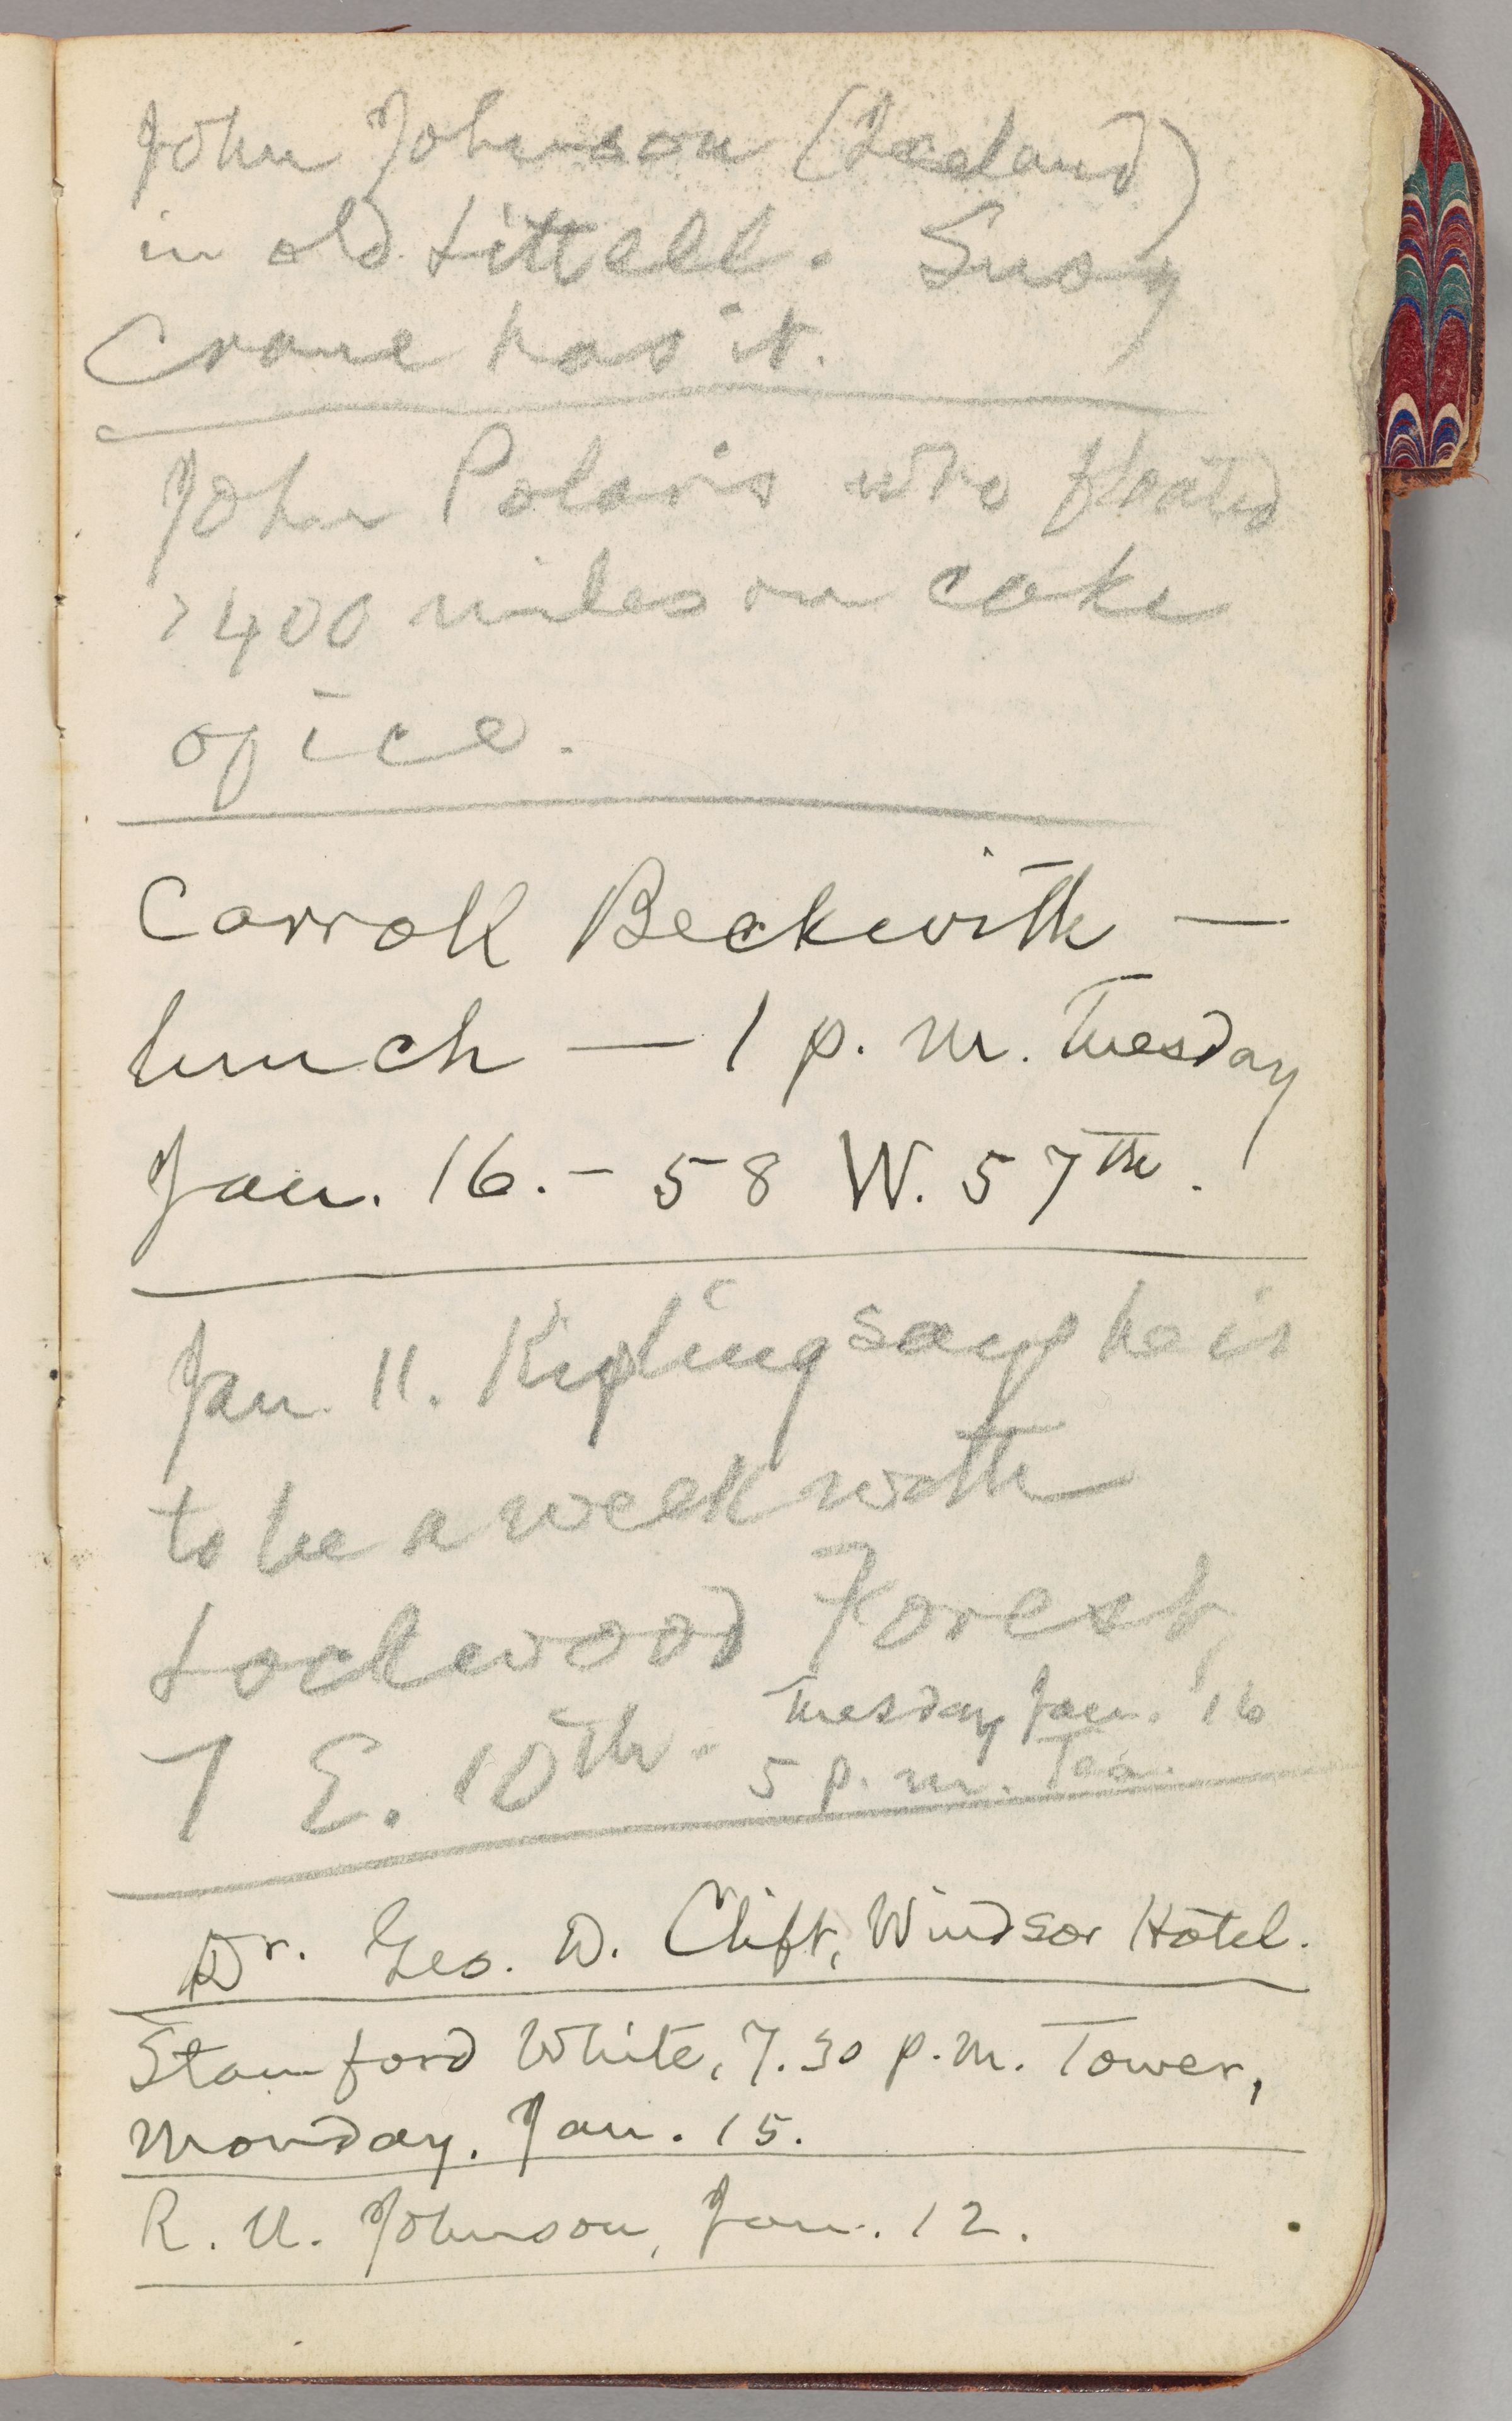 John Johnson (Iceland)
in old Littell. Susy
Crane has it.
John Polaris who floated
1400 miles on cake
of ice.
Carroll Beckwith —
lunch — 1 p. m. Tuesday
Jan. 16. – 58 W. 57th.
Jan. 11. Kipling says he is
to be a week with
Lockwood Forest,
7 E. 10th. Tuesday Jan. 16
5 p. m. Tea.
Dr. Geo. D. Clift, Windsor Hotel.
Stamford White, 7.30 p.m. Tower,
Monday. Jan. 15.
R. U. Johnson, Jan. 12.